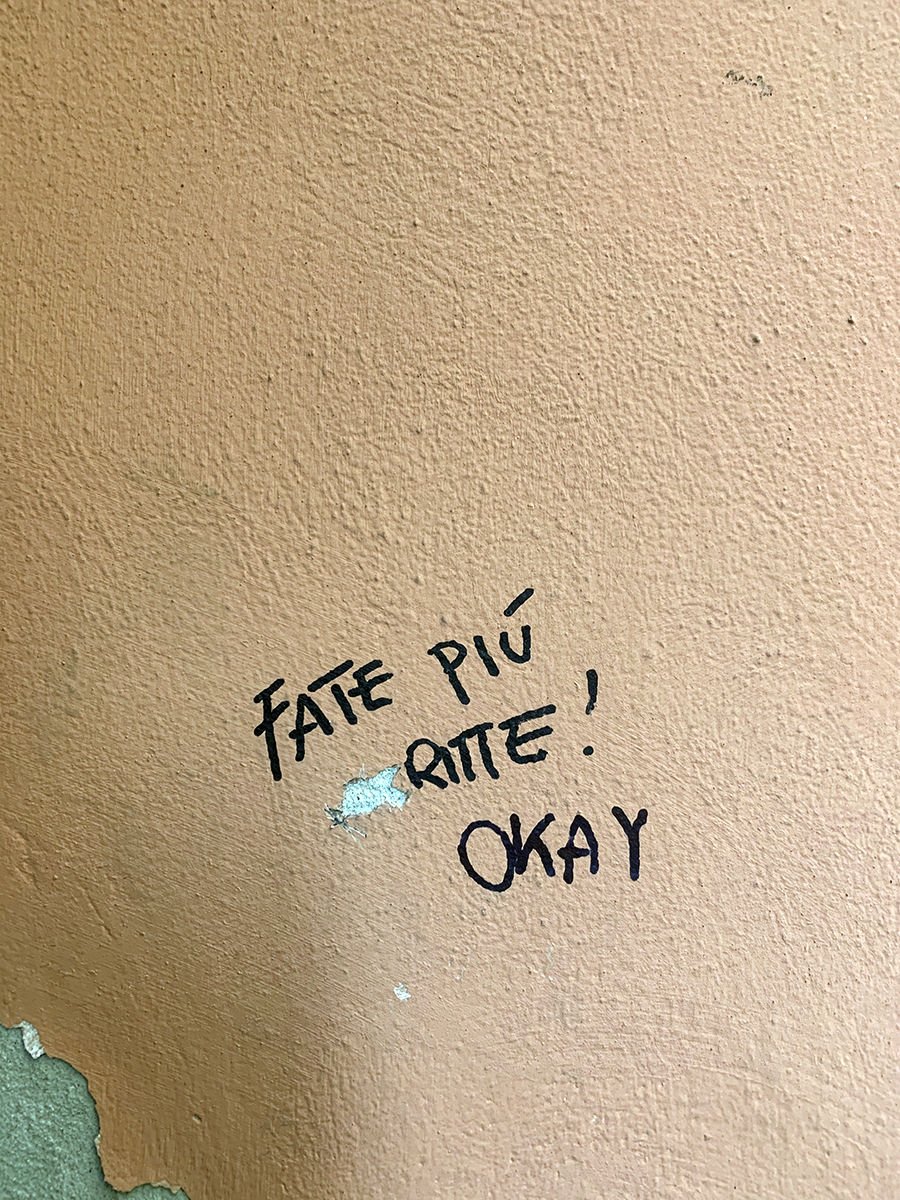 FATE PIÚ
RITTE!
OKAY